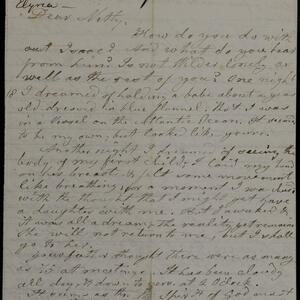 Elyria
Dear Netty,
How do you do with
out Isaac? And what do you hear
from him? Is not Wilder lonely, as
well as the rest of you? One night
I dreamed of holding a babe about a year
old dressed in blue flannel; that I was
in a vessel on the Atlantic Ocean. It seemed
to be my own, but looked like yours.
Another night I dreamed of seeing the
body of my first child; I laid my hand
on her breast & felt some movement
like breathing; for a moment I was
with the thought that I might yet have
a daughter with me. But I awaked &
it was all a dream, the reality yet remains
she will not return to me, but I shall
go to her.
Your father thought there were as many
as 75 at meeting. It has been cloudy
all day, & down to zero, at 2 O'clock.
It seems as the Spirit of God was